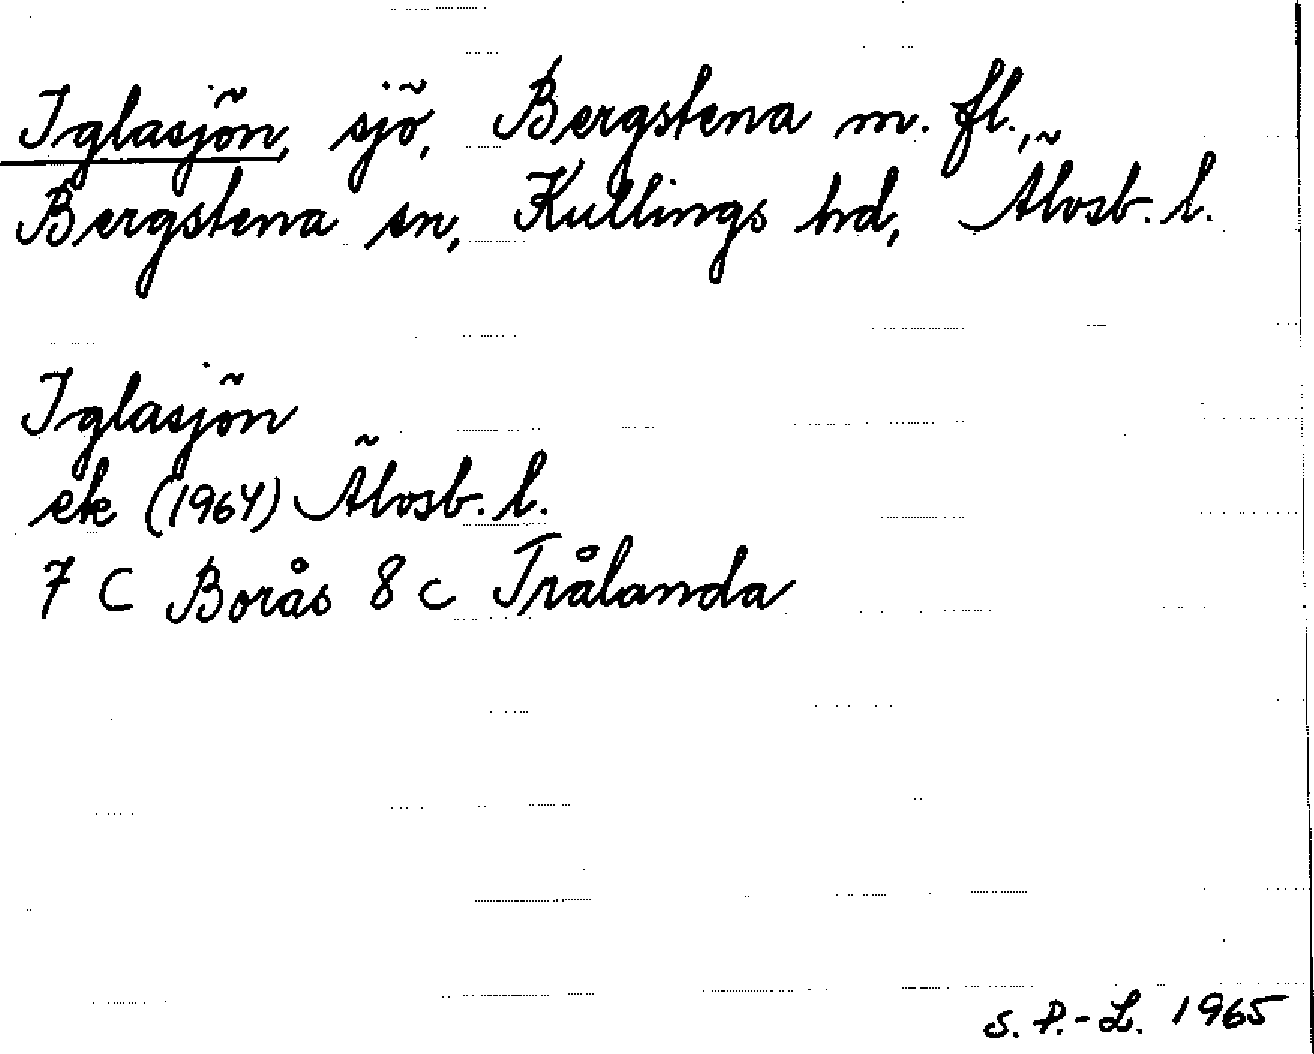 Iglasjön, sjö, Bergstena m. fl.,
Bergstena sn, Kullings hd, Älvsb. l.
Iglasjön
ek (1964) Älvsb. l.
7 C Borås 8 c Trålanda
S. P.-L. 1965